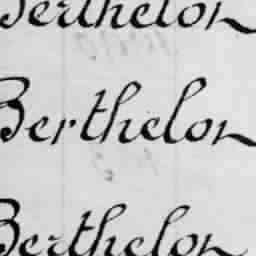 Berthelon
Berthelon
Berthelon